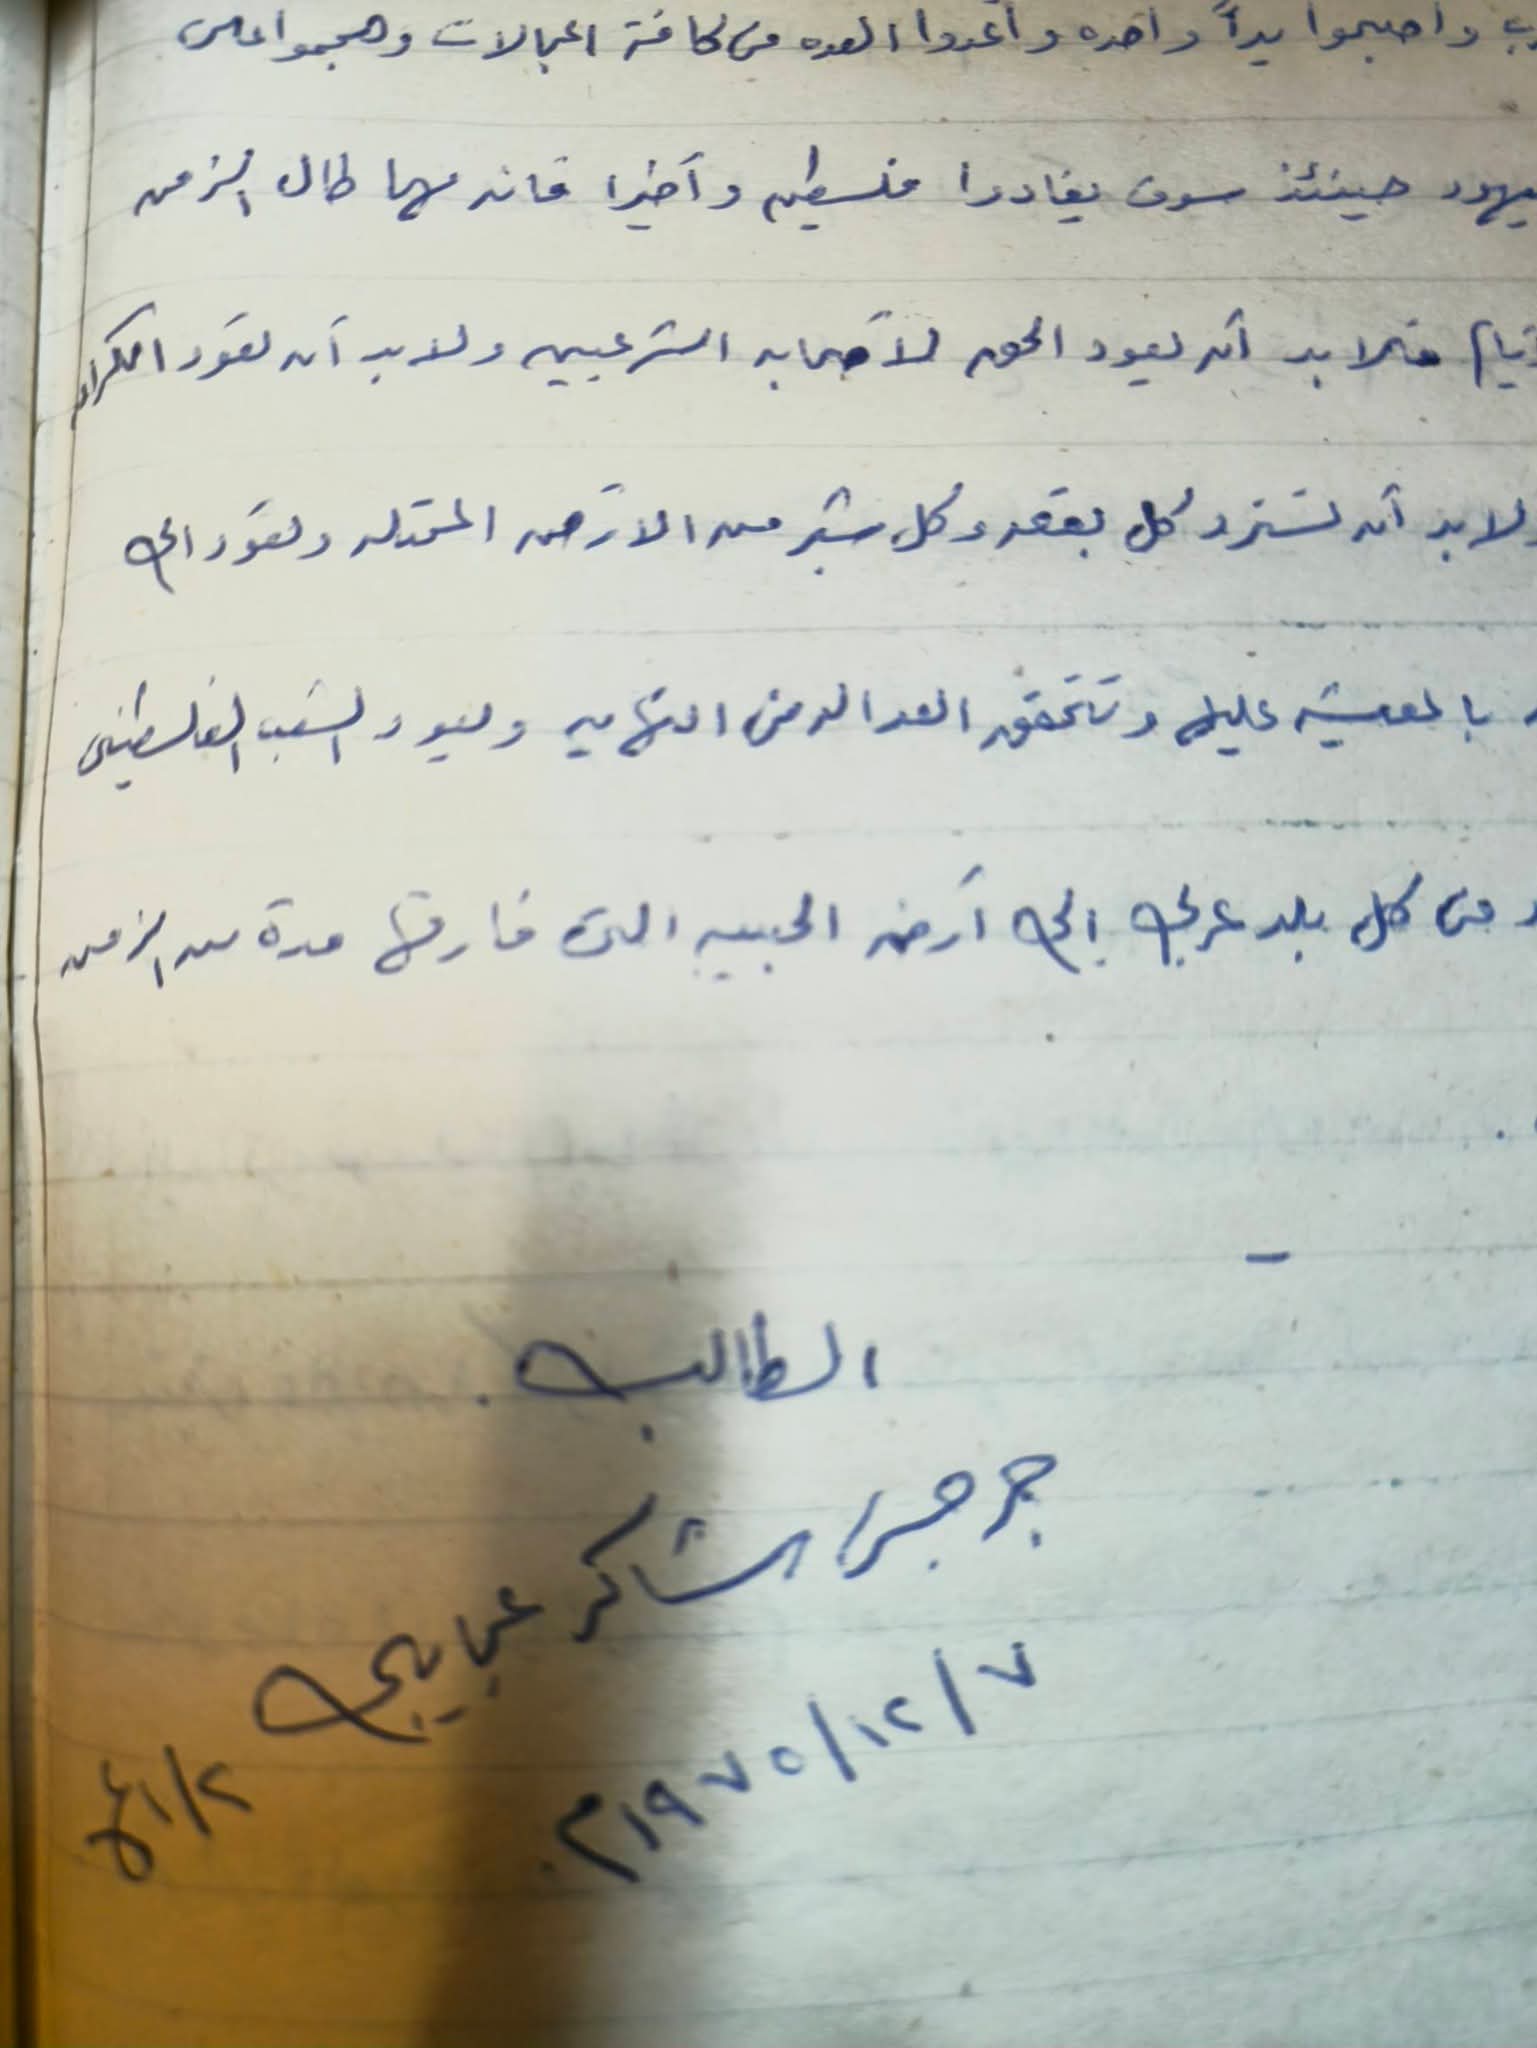 واصبحوا يداً واحده وأعدوا العده من كافة المجالات وهجموا على
حينئذ سوف يغادروا فلسطين وأخيرا فانه مهما طال الزمن
فلا بد أن يعود الحق لأصحابه الشرعيين ولا بد أن تعود الكرامه
ولا بد أن تسترد كل بقعه وكل شبر من الأرض المحتله وتعود الى
بالمعيشه عليها وتتحقق العداله في النهايه ويعود الشعب الفلسطيني
من كل بلد عربي إلى أرض الحبيبه التي فارقها مدة من الزمن
.
-
الطالب .
جرجس شاكر
٧/١٢/١٩٧٥م.